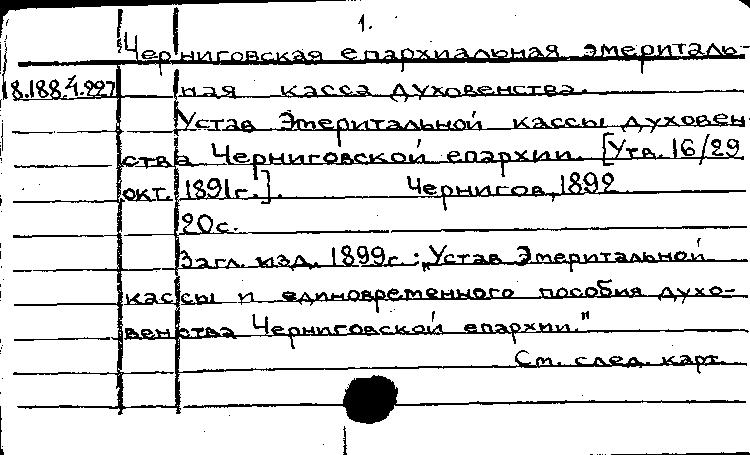 1.
Черниговская епархиальная эмериталь-
18.188.4.227 ная касса духовенства.
Устав Эмеритальной кассы духовен-
ства Черниговской епархии. [Утв. 16/29
окт. 1891г.]. Чернигов, 1892
20с.
Загл. изд. 1899г.: „Устав Эмеритальной
кассы и единовременного пособия духо-
венства Черниговской епархии."
См. след. карт.